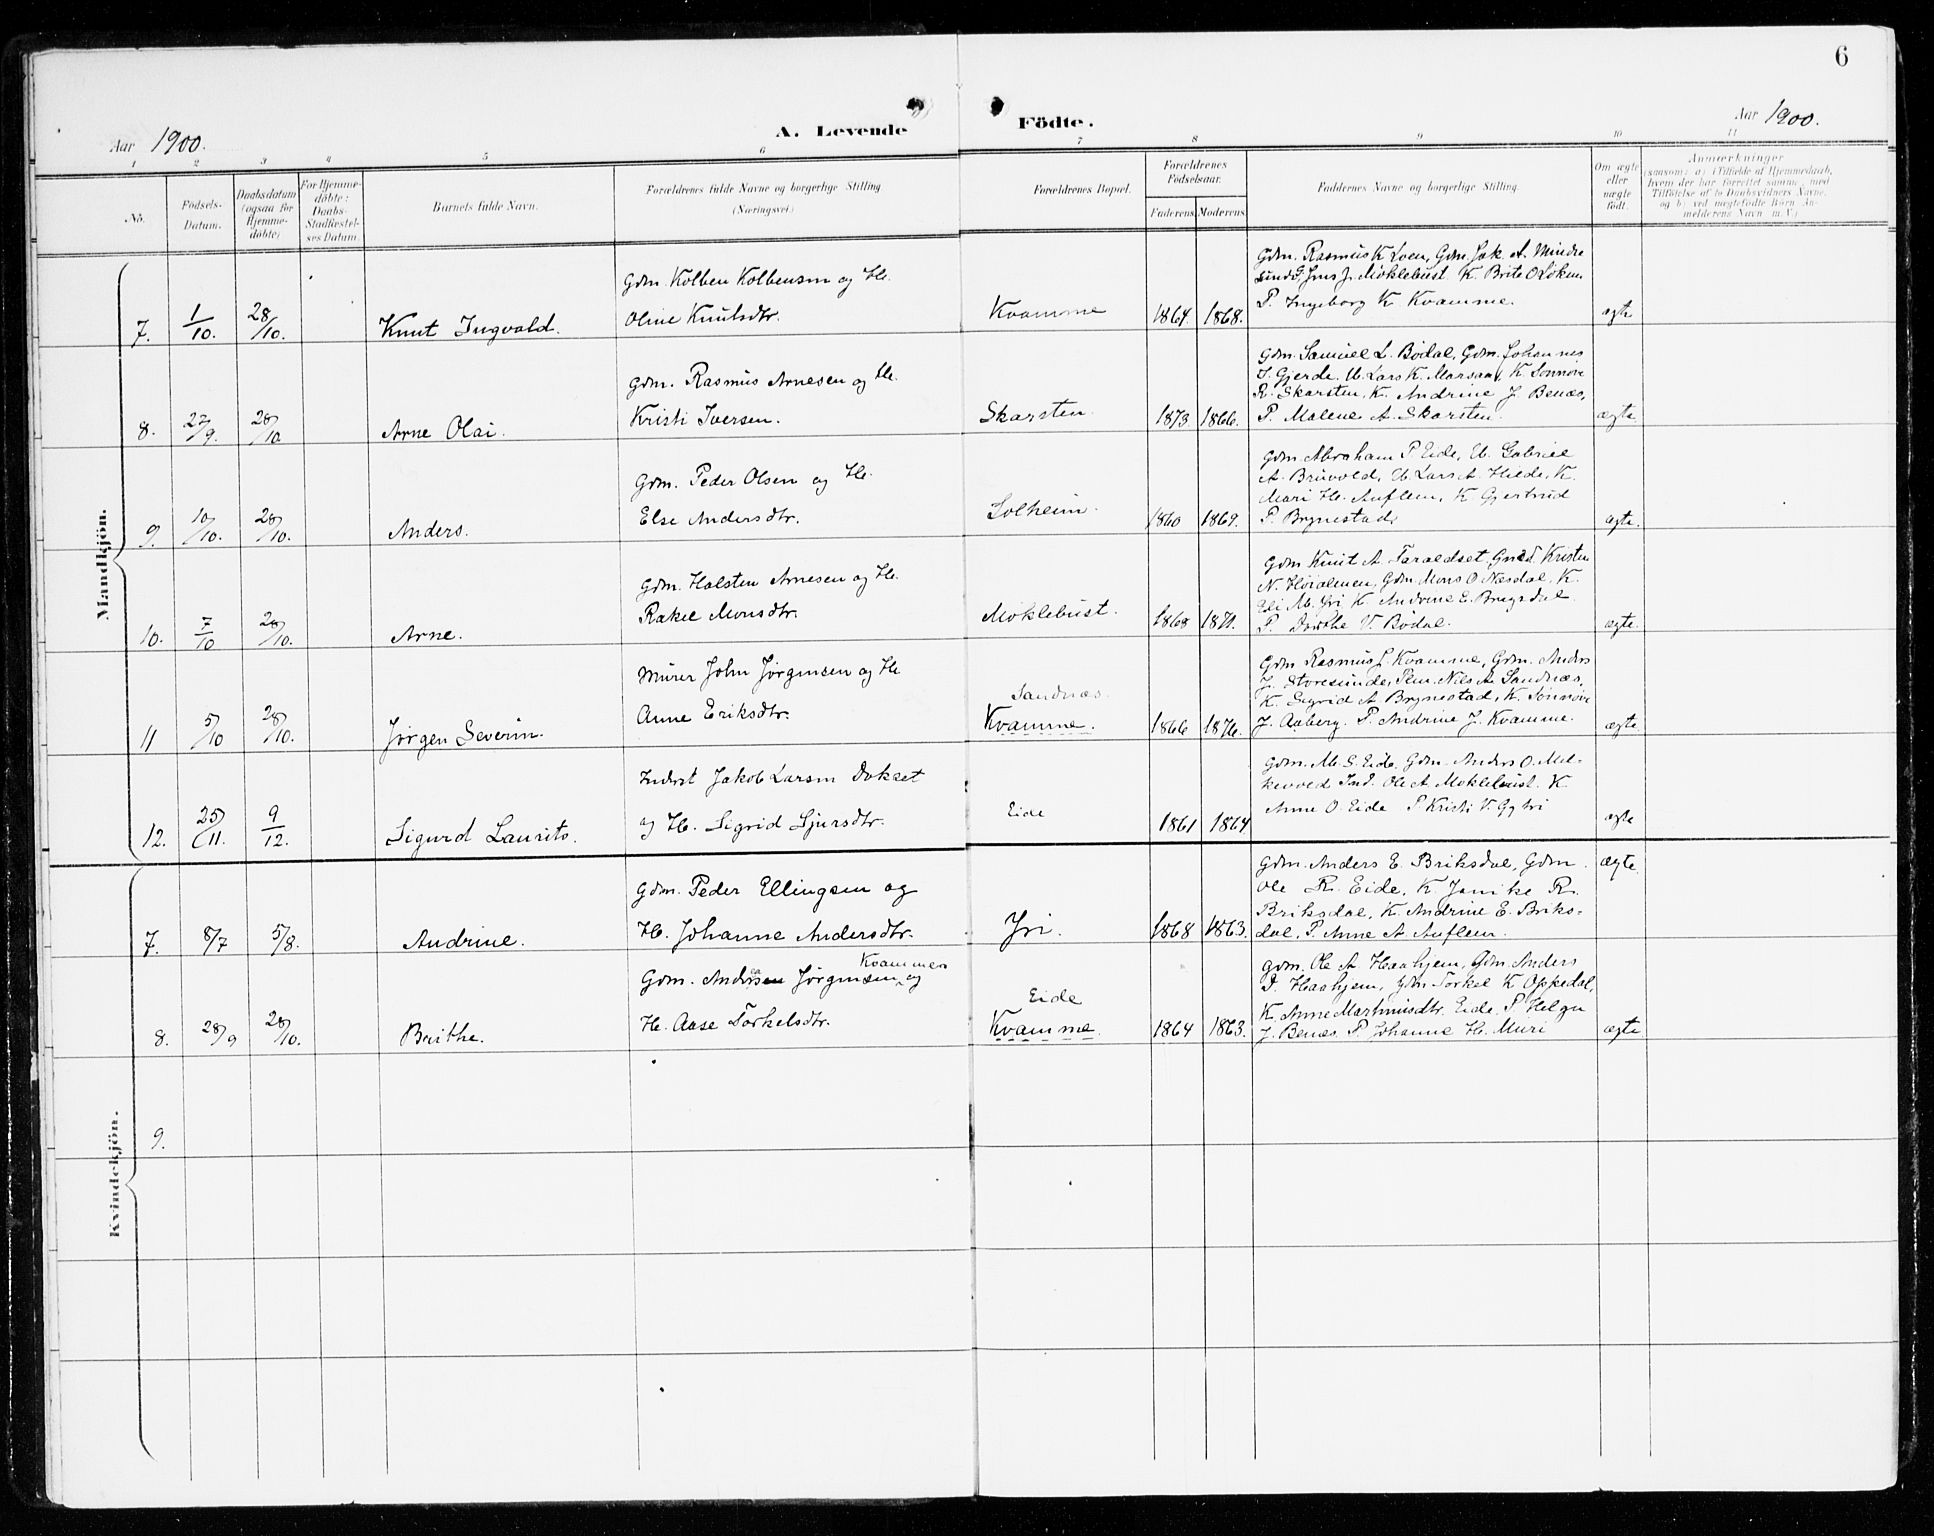 6
Aar 1900.
A. Levende Födte.
Aar 1900.
1 2 3 4 5 6 7 8 9 10 11
No.
Födsels-
Datum.
Daabsdatum
(ogsaa for
Hjemme-
döbte)
For Hjemme-
döbte:
Daabs-
Stadfæstel-
ses Datum.
Barnets fulde Navn.
Forældrenes fulde Navne og borgerlige Stilling
(Næringsvei.)
Forældrenes Bopæl.
Forældrenes
Födselsaar.
Faderens. Moderens.
Faddernes Navne og borgerlige Stilling.
Om ægte
eller
uægte
født.
Anmærkninger
(saasom: a) i Tilfælde af Hjemmedaab,
hvem der har forrettet samme, med
Tilföielse af to Daabsvidners Navne,
og b) ved uægtefödte Börn An-
melderens Navn m. V.)
Mandkjön.
7. 1/10. 28/10. Knut Ingvald.
Gdm. Kolben Kolbensen og H.
Oline Knutsdtr.
Kvamme 1864. 1868.
Gdm. Rasmus K Loen, Gdm. Jak. A. Mindre
sund G. Jens J. Møklebust K. Brite O Løken
P. Ingeborg K. Kvamme.
ægte
8. 27/9. 28/10 Arne Olai.
Gdm. Rasmus Arnesen og H.
Kristi Iversen.
Skarsten. 1873. 1866.
Gdm. Samuel L. Bødal, Gdm. Johannes
J. Gjerde, U. Lars K. Marsaa, K. Sønnøve
R. Skarsten, K. Andrine J. Benæs,
P. Malene A. Skarsten.
ægte.
9. 10/10. 28/10. Anders.
Gdm. Peder Olsen og H.
Else Andersdtr.
Solheim. 1860 1869.
Gdm. Abraham P Eide, U. Gabriel
A. Bruvold, U. Lars A. Hilde, K.
Mari H. Auflem, K. Gjertrud
P. Brynestad.
ægte.
10. 7/10 28/10. Arne.
Gdm. Halsten Arnesen og H.
Rakel Monsdtr.
Møklebust. 1868 1871.
Gdm Knut A. Taraldset, Gmd. Kristen
N. Høialmen, Gdm. Mons O Næsdal, K.
Eli M. Yri K. Andrine E. Brigsdal.
P. Dorthe V. Bødal.
ægte.
11 5/10 28/10. Jørgen Severin.
Murer John Jørgensen og H.
Anne Eriksdtr.
Sandnæs.
Kvamme. 1866 1876.
Gdm Rasmus J. Kvamme, Gdm. Anders
J. Storesunde, Pem. Nils A Sandnæs,
K. Sigrid A Brynestad, K. Sønnøve
J. Aaberg. P. Andrine J. Kvamme.
ægte.
12. 25/11. 9/12. Sigurd Laurits.
Inderst Jakob Larsen Dokset
og H. Sigrid Sjursdtr.
Eide 1861 1864
Gdm. M. S. Eide, Gdm. Anders O. Mel-
kevold Ind. Ole A. Møklebust. K
Anne O. Eide P Kristi V. Gytri
ægte
Kvindekjön.
7. 8/7 5/8. Andrine.
Gdm. Peder Ellingsen og
H. Johanne Andersdtr.
Yri. 1868 1863.
Gdm. Anders E. Briksdal, Gdm.
Ole R. Eide, K. Janike R.
Briksdal, K. Andrine E. Briks-
dal, P. Anne A. Auflem.
ægte.
8. 28/9 28/10. Brithe.
Kvammen
Gdm. Anders Jørgensen og
H. Aase Torkelsdtr.
Eide
Kvamme. 1864 1863.
Gdm. Ole A. Haahjem, Gdm. Anders
P. Haahjem, Gdm Torkel K Oppedal,
K. Anne Marthinusdtr. Eide P Helga
J. Benæs. P. Johanne H. Muri
ægte.
9.